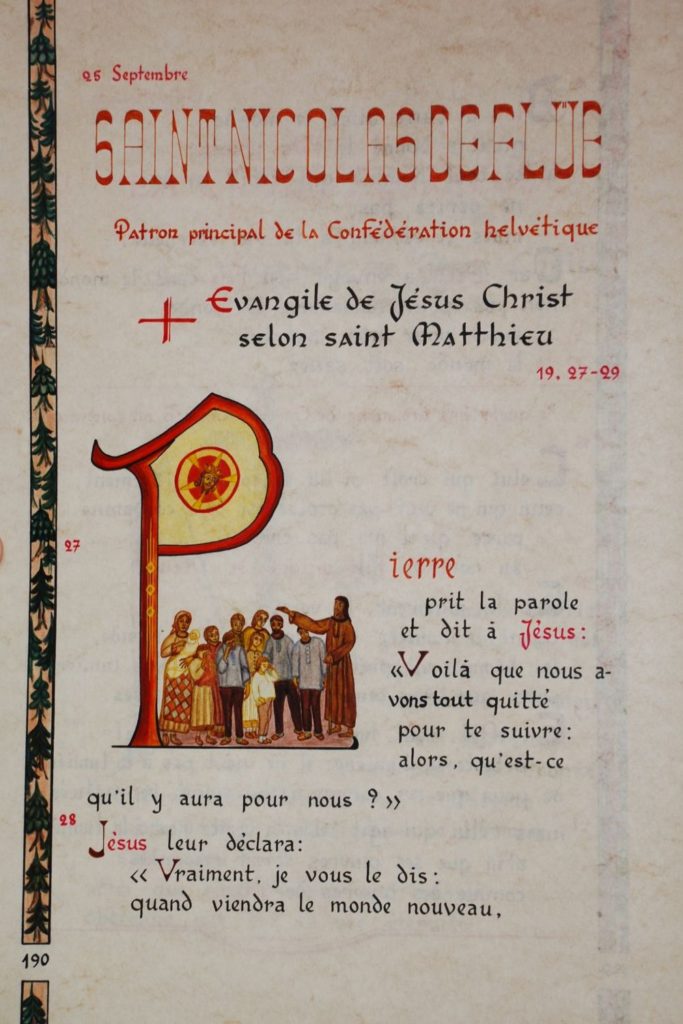 25 Septembre
SAINT NICOLAS DE FLÜE
Patron principal de la Confédération helvétique
Evangile de Jésus Christ
selon saint Matthieu
19, 27-29
27
Pierre
prit la parole
et dit à Jésus:
«Voilà que nous a-
vons tout quitté
pour te suivre:
alors, qu'est-ce
qu'il y aura pour nous ?»
28
Jésus leur déclara:
« Vraiment, je vous le dis:
quand viendra le monde nouveau,
190